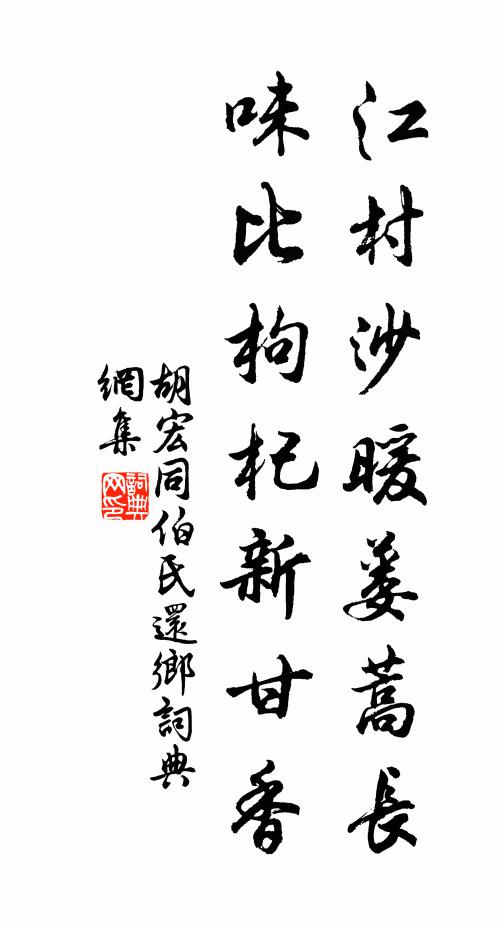 江村沙暖蒌蒿長
味比枸杞新甘香
胡宏同伯氏還鄉詞典
網集
詞典
网印